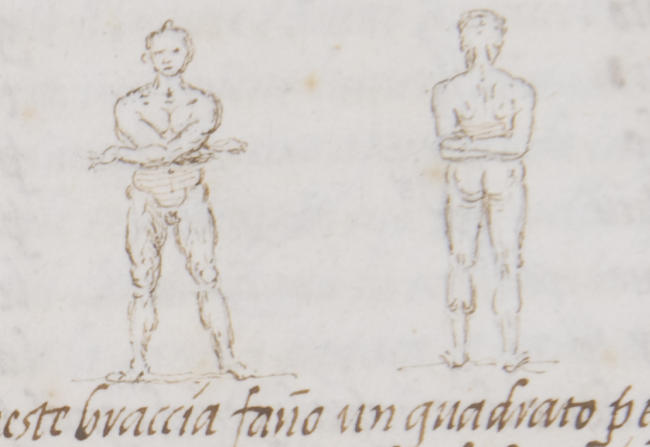 este braccia faño un quadrato pe